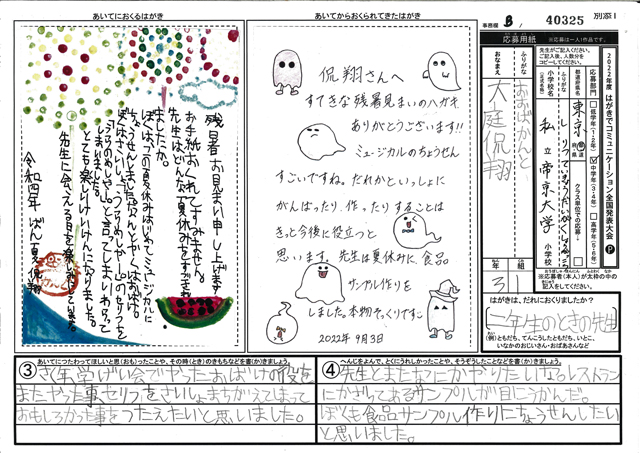 あいてにおくるはがき
残暑お見まい申し上げます
お手紙おくれてすみません。
先生はどんな夏休みをすごし
ましたか。
先生に会える日を楽しみにしています。
令和四年 ばん夏 侃翔
あいてからおくられてきたはがき
侃翔さんへ
すてきな残暑見まいのハガキ
ありがとうございます!!
ミュージカルのちょうせん
すごいですね。だれかといっしょに
がんばったり、作ったりすることは
きっと今後に役立つと
思います。先生は夏休みに、食品
サンプル作りを
しました。本物そっくりですよ
2022年9月3日
事務欄 B
40325 別添1
2022年度 はがきでコミュニケーション全国発表大会
応募用紙
※応募は一人1作品です。
先生がご記入ください。
ご記入後、人数分を
コピーしてください。
応募部門
低学年(1・2年)
中学年(3・4年)
高学年(5・6年)
都道府県名
東京
クラス単位での応募
ふりがな
小学校名
(正式名称)
私立 帝京大学 小学校
ふりがな
おおばかんと
おなまえ
大庭侃翔
3年 1組
※応募者(本人)が太枠の中の
記入をしてください。
はがきは、だれにおくりましたか?
一年生のときの先生
(例)ともだち、てんこうしたともだち、いとこ、
いなかのおじいさん・おばあさんなど
③ あいてにつたわってほしいと思(おも)ったことや、その時(とき)のきもちなどを書(か)きましょう。
さく年学げい会でやったおばけの役を
またやった事、セリフをさいしょまちがえてしまって
おもしろかった事をつたえたいと思いました。
④ へんじをよんで、とくにうれしかったことや、そうぞうしたことなどを書(か)きましょう。
先生とまたなにかやりたいな。レストラン
にかざってあるサンプルが目にうかんだ。
ぼくも食品サンプル作りにちょうせんしたい
と思いました。